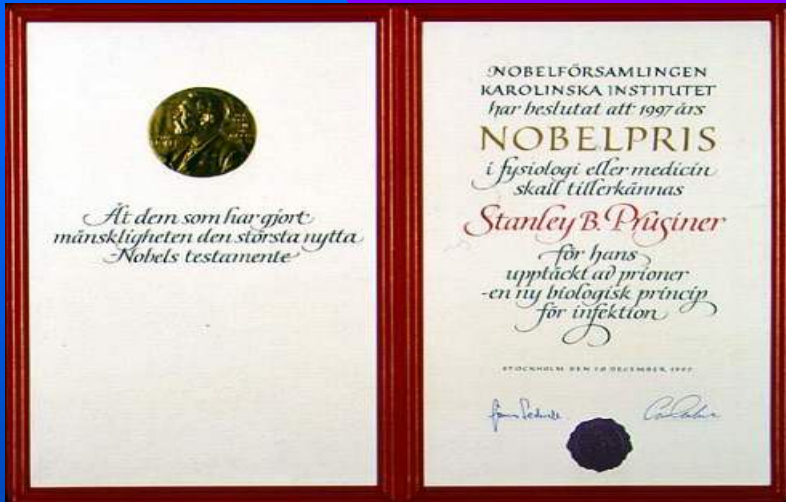 Åt dem som har gjort
mänskligheten den största nytta
-Nobels testamente
NOBELFÖRSAMLINGEN
KAROLINSKA INSTITUTET
har beslutat att 1997 års
NOBELPRIS
i fysiologi eller medicin
skall tillerkännas
Stanley B. Prusiner
för hans
upptäckt av prioner
-en ny biologisk princip
för infektion
STOCKHOLM DEN 10 DECEMBER 1997